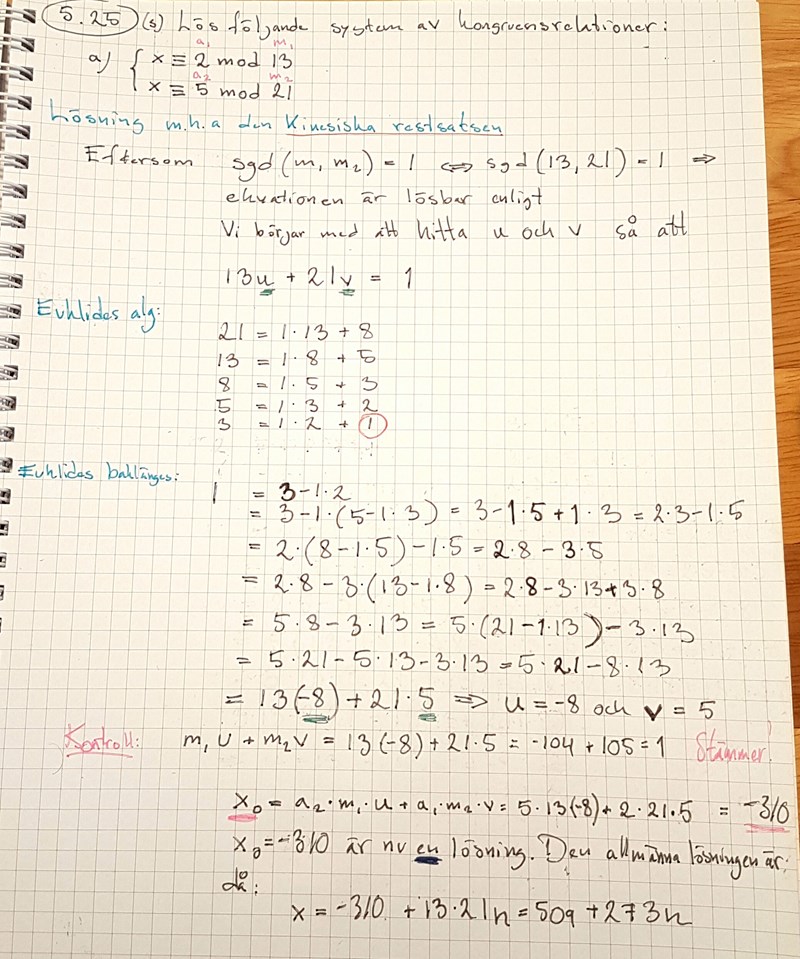 5.25 (s) Lös följande system av kongruensrelationer:
a₁ m₁
a) { x ≡ 2 mod 13
a₂ m₂
x ≡ 5 mod 21
Lösning m.h.a den Kinesiska restsatsen
Eftersom sgd(m₁ m₂) = 1 ⇔ sgd(13, 21) = 1 ⇒
ekvationen är lösbar enligt
Vi börjar med att hitta u och v så att
13u + 21v = 1
Euklides alg:
21 = 1·13 + 8
13 = 1·8 + 5
8 = 1·5 + 3
5 = 1·3 + 2
3 = 1·2 + 1
Euklides baklänges:
1 = 3-1·2
= 3-1·(5-1·3) = 3-1·5+1·3 = 2·3-1·5
= 2·(8-1·5)-1·5 = 2·8-3·5
= 2·8-3·(13-1·8) = 2·8-3·13+3·8
= 5·8-3·13 = 5·(21-1·13)-3·13
= 5·21-5·13-3·13 = 5·21-8·13
= 13(-8)+21·5 ⇒ u = -8 och v = 5
Kontroll: m₁u + m₂v = 13(-8)+21·5 = -104+105=1 Stämmer!
x₀ = a₂·m₁·u + a₁·m₂·v = 5·13(-8)+2·21·5 = -310
x₀ = -310 är nu en lösning. Den allmänna lösningen är:
då:
x = -310 + 13·21n = 509 + 273n